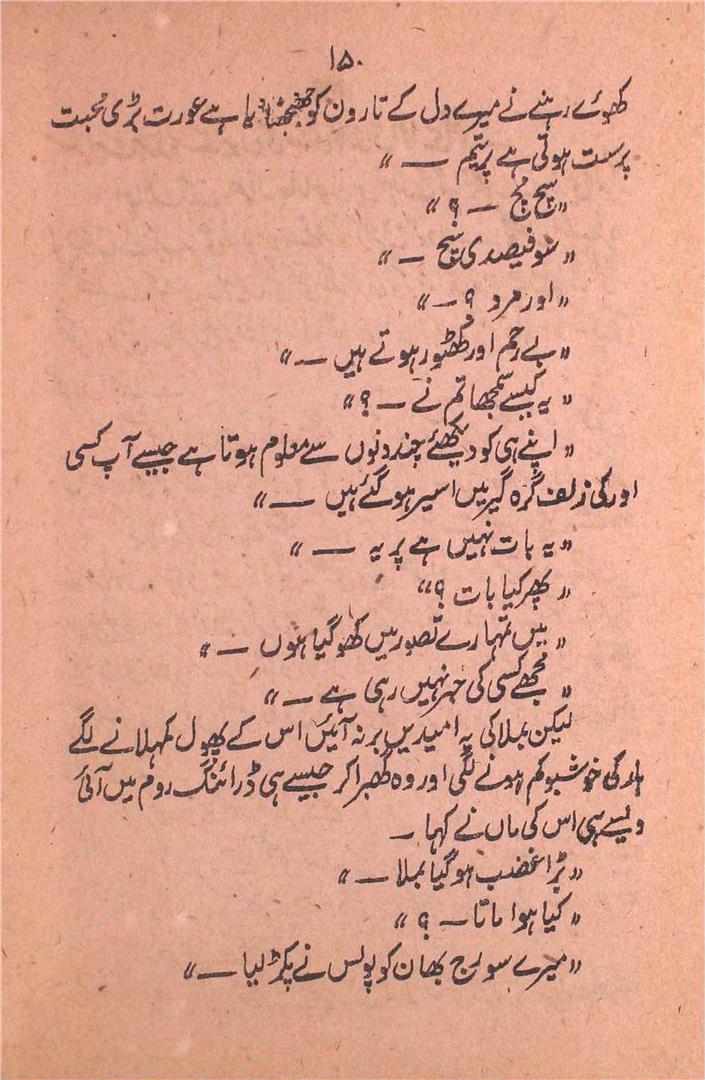 ۱۵۰
کھوئے رہنے نے میرے دل کے تارون کو جھنجھنا دیا ہے عورت بڑی محبت
پرست ہوتی ہے پریتم ــ "
"سچ مچ ــ ؟ "
"سو فیصدی سچ ــ "
"اور مرد ؟ ــ "
"بے رحم اور کٹھور ہوتے ہیں ــ "
"یہ کیسے سمجھا تم نے ــ ؟ "
"اپنے ہی کو دیکھئے چند دنوں سے معلوم ہوتا ہے جیسے آپ کسی
اور کی زلف گرہ گیر میں اسیر ہو گئے ہیں ــ "
"یہ بات نہیں ہے پر یہ ــ "
"پھر کیا بات ؟ "
"میں تمہارے تصور میں کھو گیا ہوں ــ "
"مجھے کسی کی خبر نہیں رہی ہے ــ "
لیکن بملا کی یہ امیدیں بر نہ آئیں اس کے پھول کمہلانے لگے
ہار کی خوشبو کم ہونے لگی اور وہ گھبرا کر جیسے ہی ڈرائنگ روم میں آئی
ویسے ہی اس کی ماں نے کہا ــ
"بڑا غضب ہو گیا بملا ــ "
"کیا ہوا ماتا ــ ؟ "
"میرے سورج بھان کو پولس نے پکڑ لیا ــ "